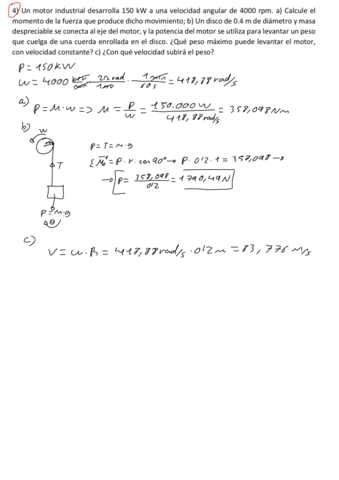 4) Un motor industrial desarrolla 150 kW a una velocidad angular de 4000 rpm. a) Calcule el
momento de la fuerza que produce dicho movimiento; b) Un disco de 0.4 m de diámetro y masa
despreciable se conecta al eje del motor, y la potencia del motor se utiliza para levantar un peso
que cuelga de una cuerda enrollada en el disco. ¿Qué peso máximo puede levantar el motor,
con velocidad constante? c) ¿Con qué velocidad subirá el peso?
P = 150 KW
W = 4000 rev/min · 2π rad/1 rev · 1 min/60 s = 418,88 rad/s
a) P = M·w => M = P/W = 150.000 W / 418,88 rad/s = 358,098 Nm
b)
w
T
P = m·g
P = T = m·g
ΣM = P·r·sen 90° → P·0'2·1 = 358,098 →
→ P = 358,098/0'2 = 1790,49 N
c)
V = w·R = 418,88 rad/s · 0'2 m = 83,776 m/s